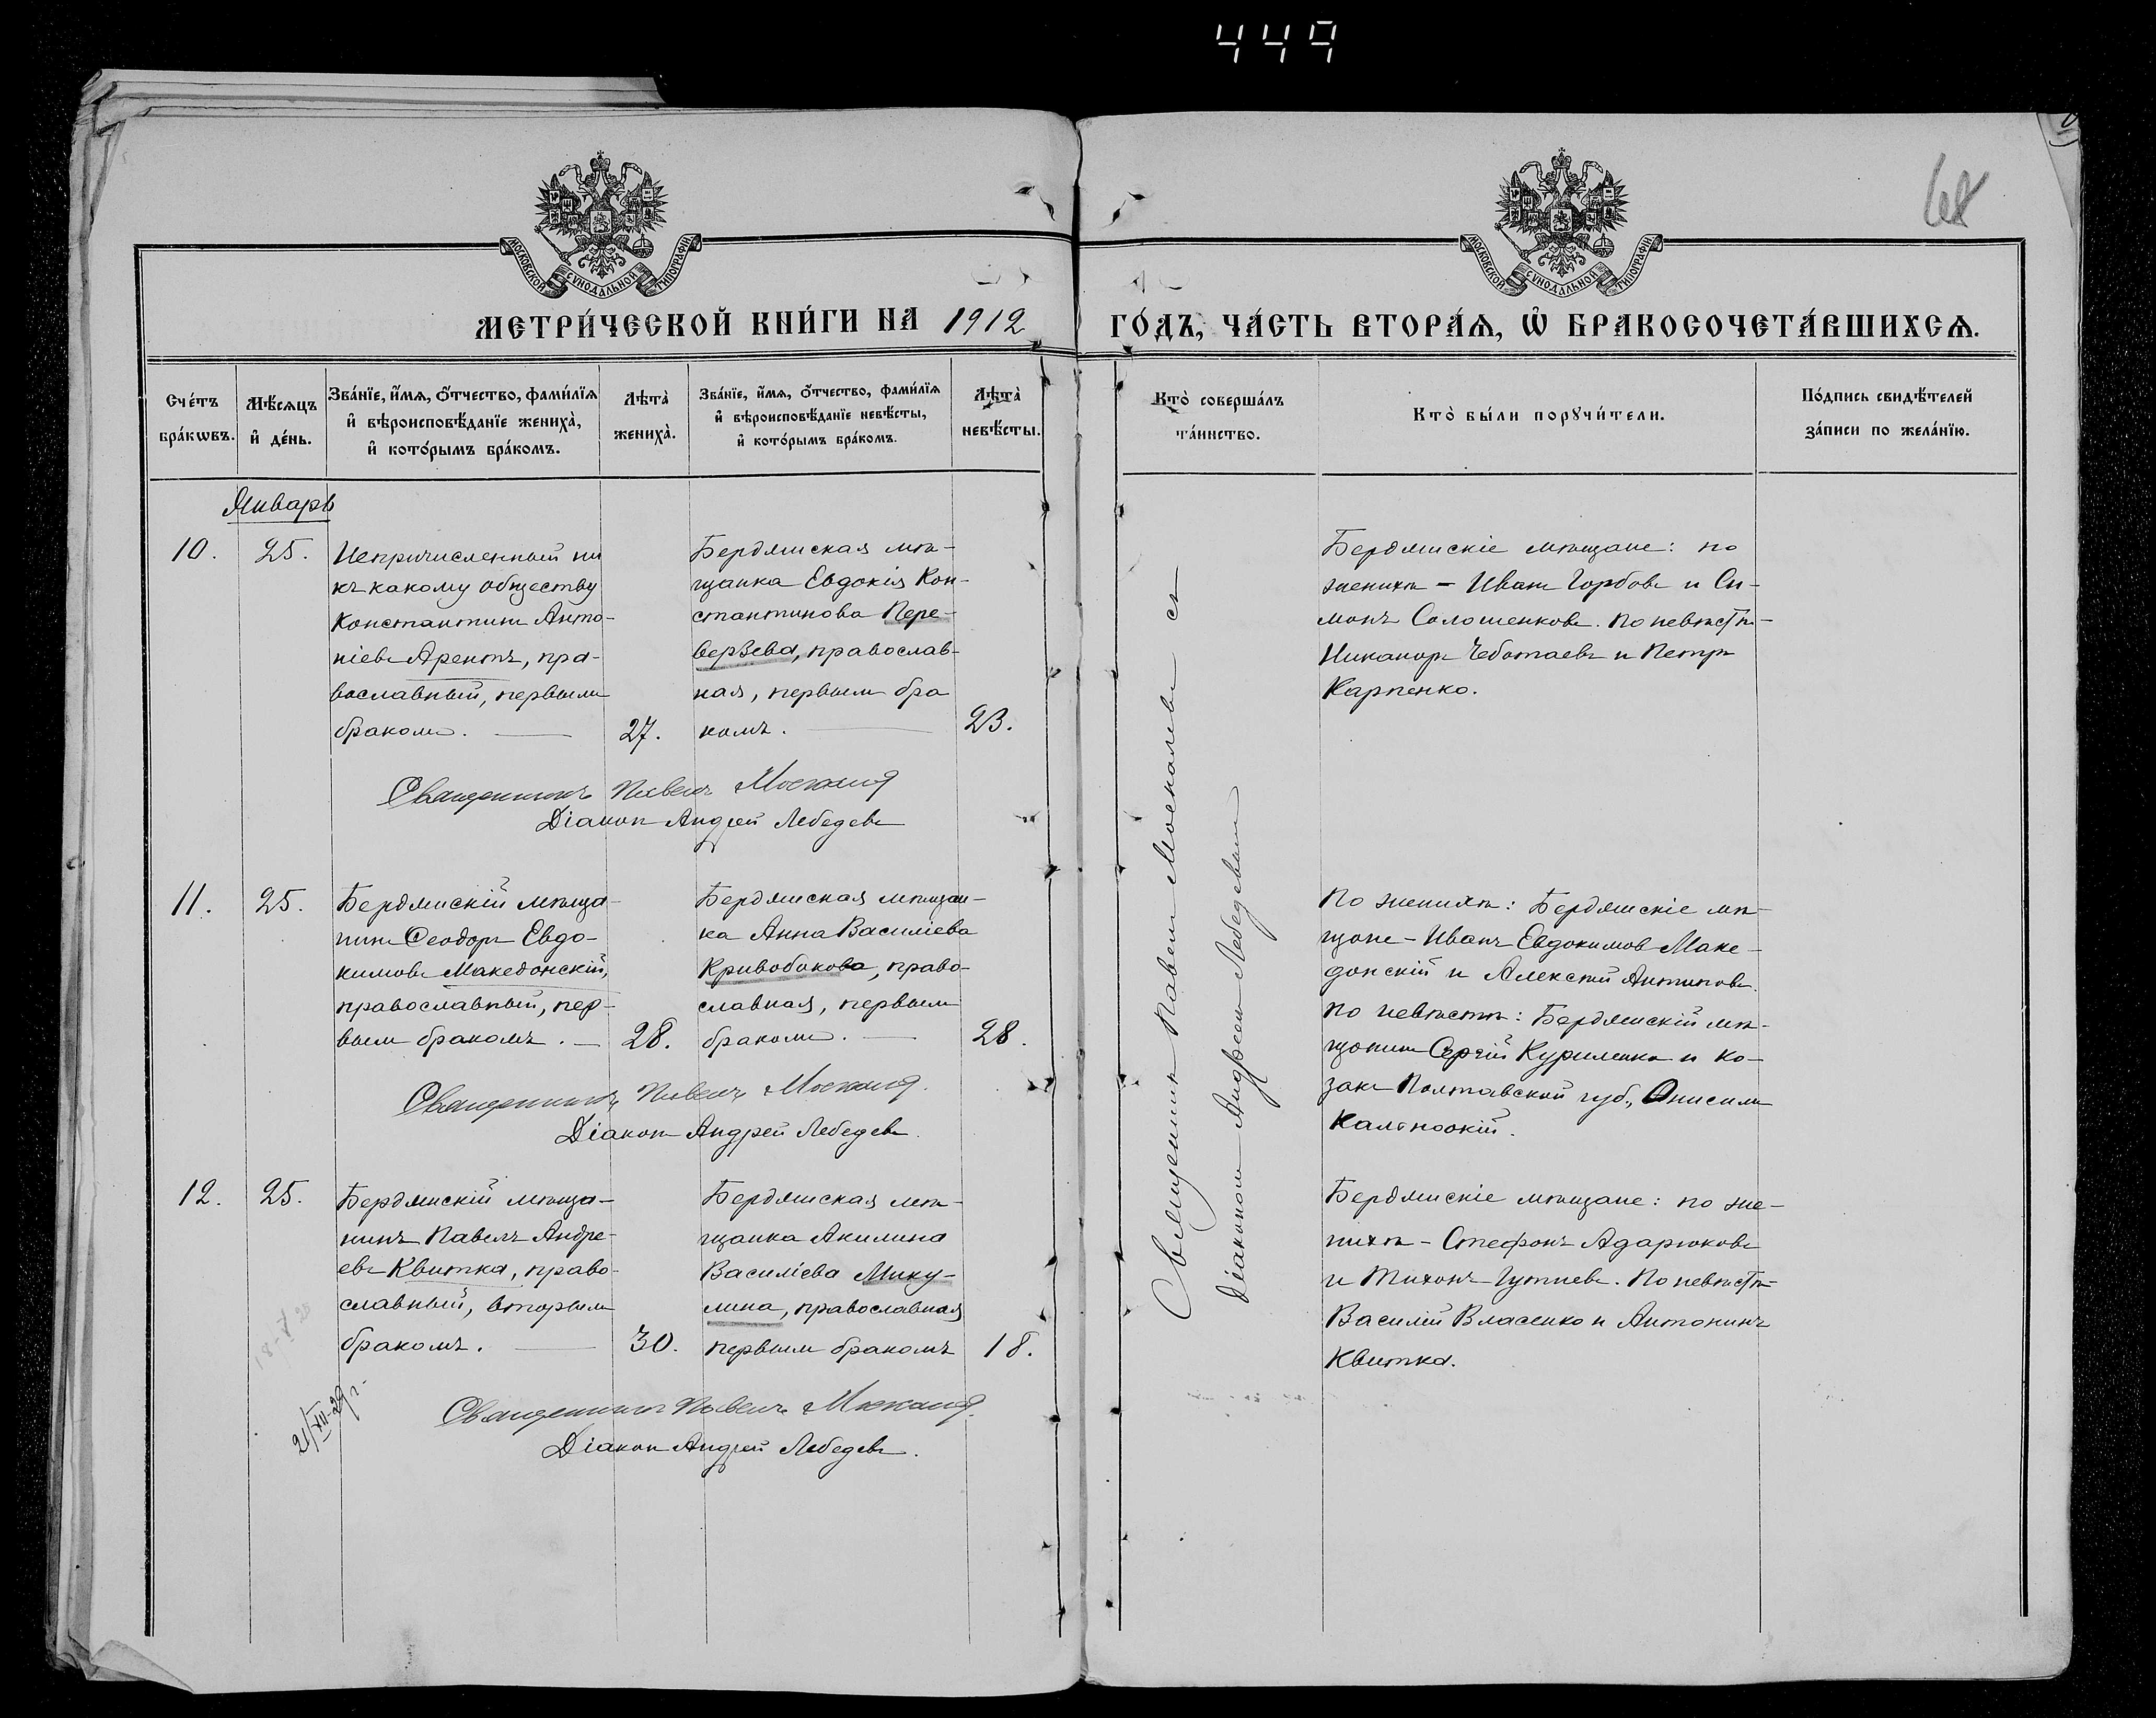 449
68
МОСКОВСКОЙ СѴНОДАЛЬНОЙ ТИПОГРАФІИ
МОСКОВСКОЙ СѴНОДАЛЬНОЙ ТИПОГРАФІИ
МЕТРИ́ЧЕСКОЙ КНИ́ГИ НА 1912 ГО́ДЪ, ЧА́СТЬ ВТОРА́Ѧ, Ѡ҆ БРАКОСОЧЕТА́ВШИХСѦ.
Сче́тъ бра́кѡвъ.
Мѣ́сѧцъ и҆ де́нь.
Зва́нїе, и҆́мѧ, ѻ҆́тчество, фами́лїѧ
и҆ вѣроисповѣ́данїе жениха̀,
и҆ кото́рымъ бра́комъ.
Лѣта̀ жениха̀.
Зва́нїе, и҆́мѧ, ѻ҆́тчество, фами́лїѧ
и҆ вѣроисповѣ́данїе невѣ́сты,
и҆ кото́рымъ бра́комъ.
Лѣта̀ невѣ́сты.
Кто̀ соверша́лъ
та́инство.
Кто̀ бы́ли порꙋчи́тели.
По́дпись свидѣ́телей
за́писи по жела́нїю.
Январь
10. 25.
Непричисленный ни
къ какому обществу
Константинъ Анто-
ніевъ Арентъ, пра-
вославный, первымъ
бракомъ. 27.
Бердянская мѣ-
щанка Евдокія Кон-
стантинова Пере-
верзева, православ-
ная, первымъ бра
комъ. 23.
Бердянскіе мѣщане: по
женихѣ - Иванъ Горбовъ и Си-
монъ Солошенковъ. По невѣстѣ-
Никаноръ Чеботаевъ и Петръ
Карпенко.
Священникъ Павелъ
Діаконъ Андрей Лебедевъ
11. 25.
Бердянскій мѣща-
нинъ Ѳеодоръ Евдо-
кимовъ Македонскій,
православный, пер-
вымъ бракомъ. 28.
Бердянская мѣщан-
ка Анна Василіева
Кривобокова, право-
славная, первымъ
бракомъ. 28.
По женихѣ: Бердянскіе мѣ-
щане - Иванъ Евдокимов Маке-
донскій и Алексѣй Антиповъ.
По невѣстѣ: Бердянскій мѣ-
щанинъ Сергій Куриленко и ко-
закъ Полтавской губ., Онисимъ
Священникъ Павелъ
Діаконъ Андрей Лебедевъ.
12. 25.
Бердянскій мѣща-
нинъ Павелъ Андре-
евъ Квитка, право-
славный, вторымъ
бракомъ. 30.
Бердянская мѣ-
щанка Акилина
Василіева Мику-
лина, православная
первымъ бракомъ 18.
Бердянскіе мѣщане: по же-
нихѣ - Стефанъ Адарюковъ
и Тихонъ Гутневъ. По невѣстѣ-
Василій Власенко и Антонинъ
Квитка.
21/XII-29 г.
Священникъ Павелъ
Діаконъ Андрей Лебедевъ.
Священникъ Павелъ Москалевъ съ
Діакономъ Андреемъ Лебедевымъ